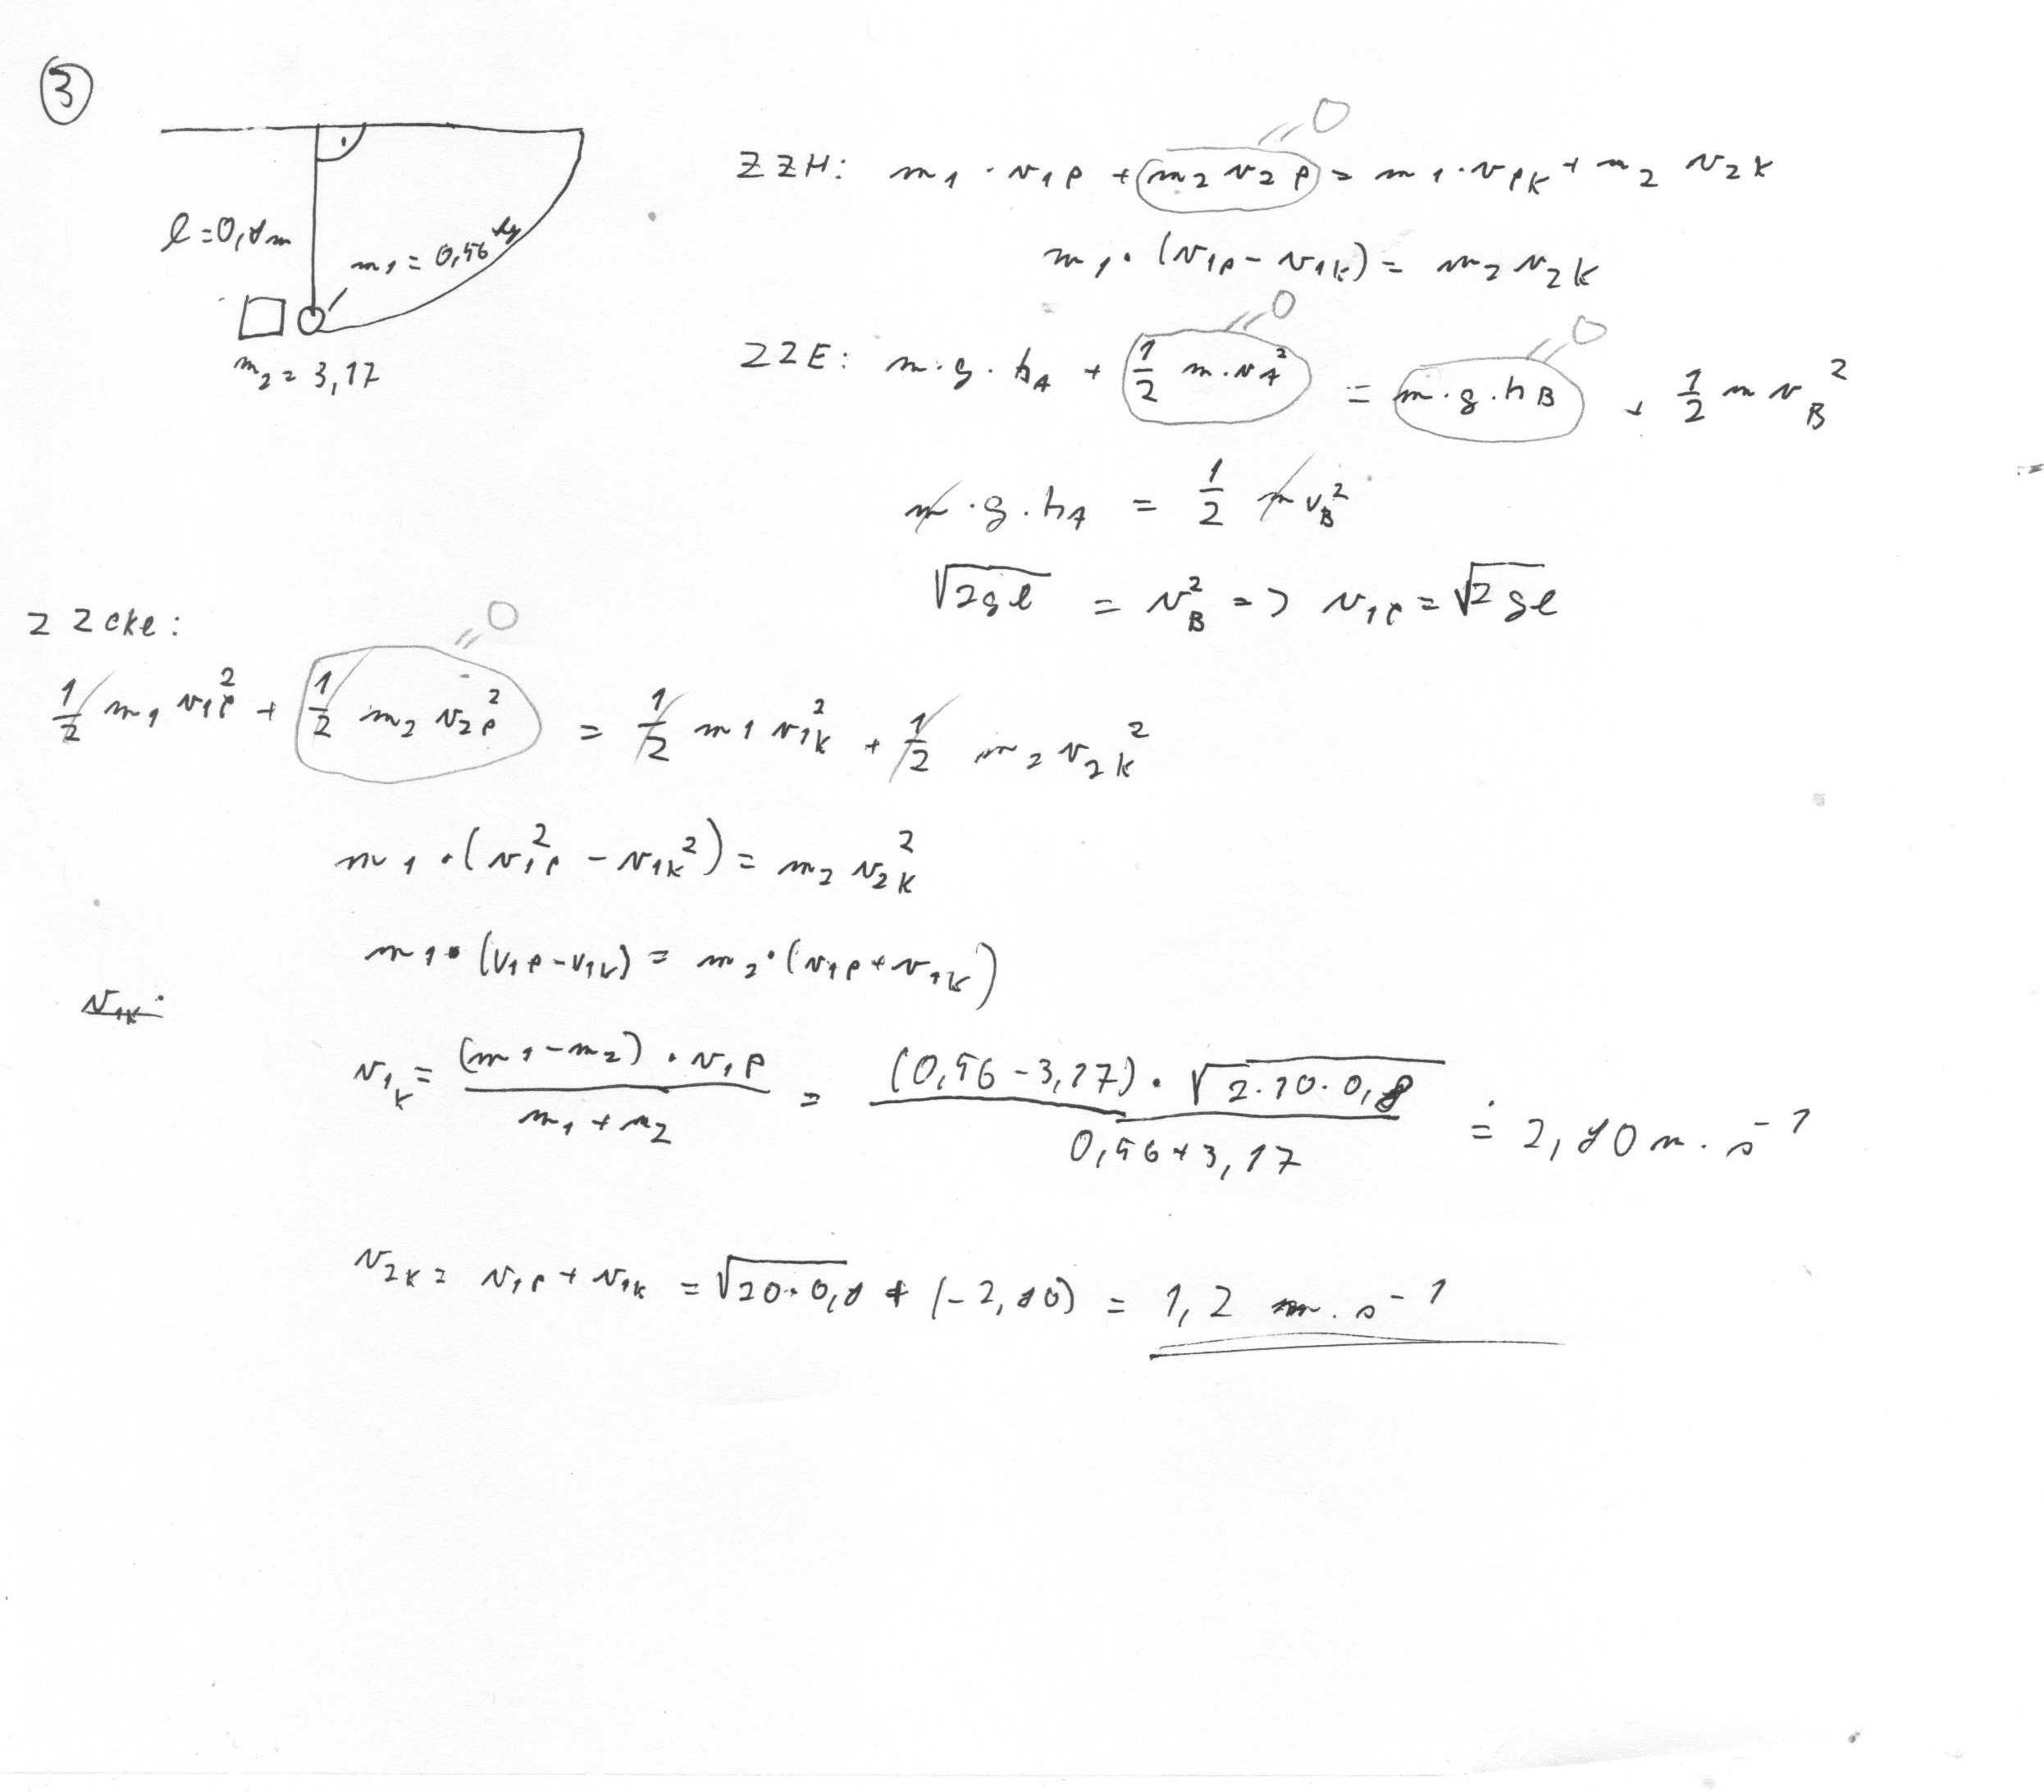 3
ZZH: m1 · v1p + m2 v2p = m1 · vpk + m2 v2k
= 0
l = 0,8m
m1 = 0,56 kg
m1 · (v1p - v1k) = m2 v2k
m2 = 3,17
ZZE: m · g · hA + 1/2 m · vA² = m · g · hB + 1/2 m vB²
= 0
= 0
m · g · hA = 1/2 m vB²
√2gl = vB² => v1p = √2gl
ZZcke:
= 0
1/2 m1 v1p² + 1/2 m2 v2p² = 1/2 m1 v1k² + 1/2 m2 v2k²
m1 · (v1p² - v1k²) = m2 v2k²
m1 · (v1p - v1k) = m2 · (v1p + v1k)
v1k:
v1k = (m1 - m2) · v1p / m1 + m2 = (0,56 - 3,17) · √2·10·0,8 / 0,56 + 3,17 ≐ 2,80 m · s⁻¹
v2k = v1p + v1k = √20·0,8 + (-2,80) = 1,2 m · s⁻¹